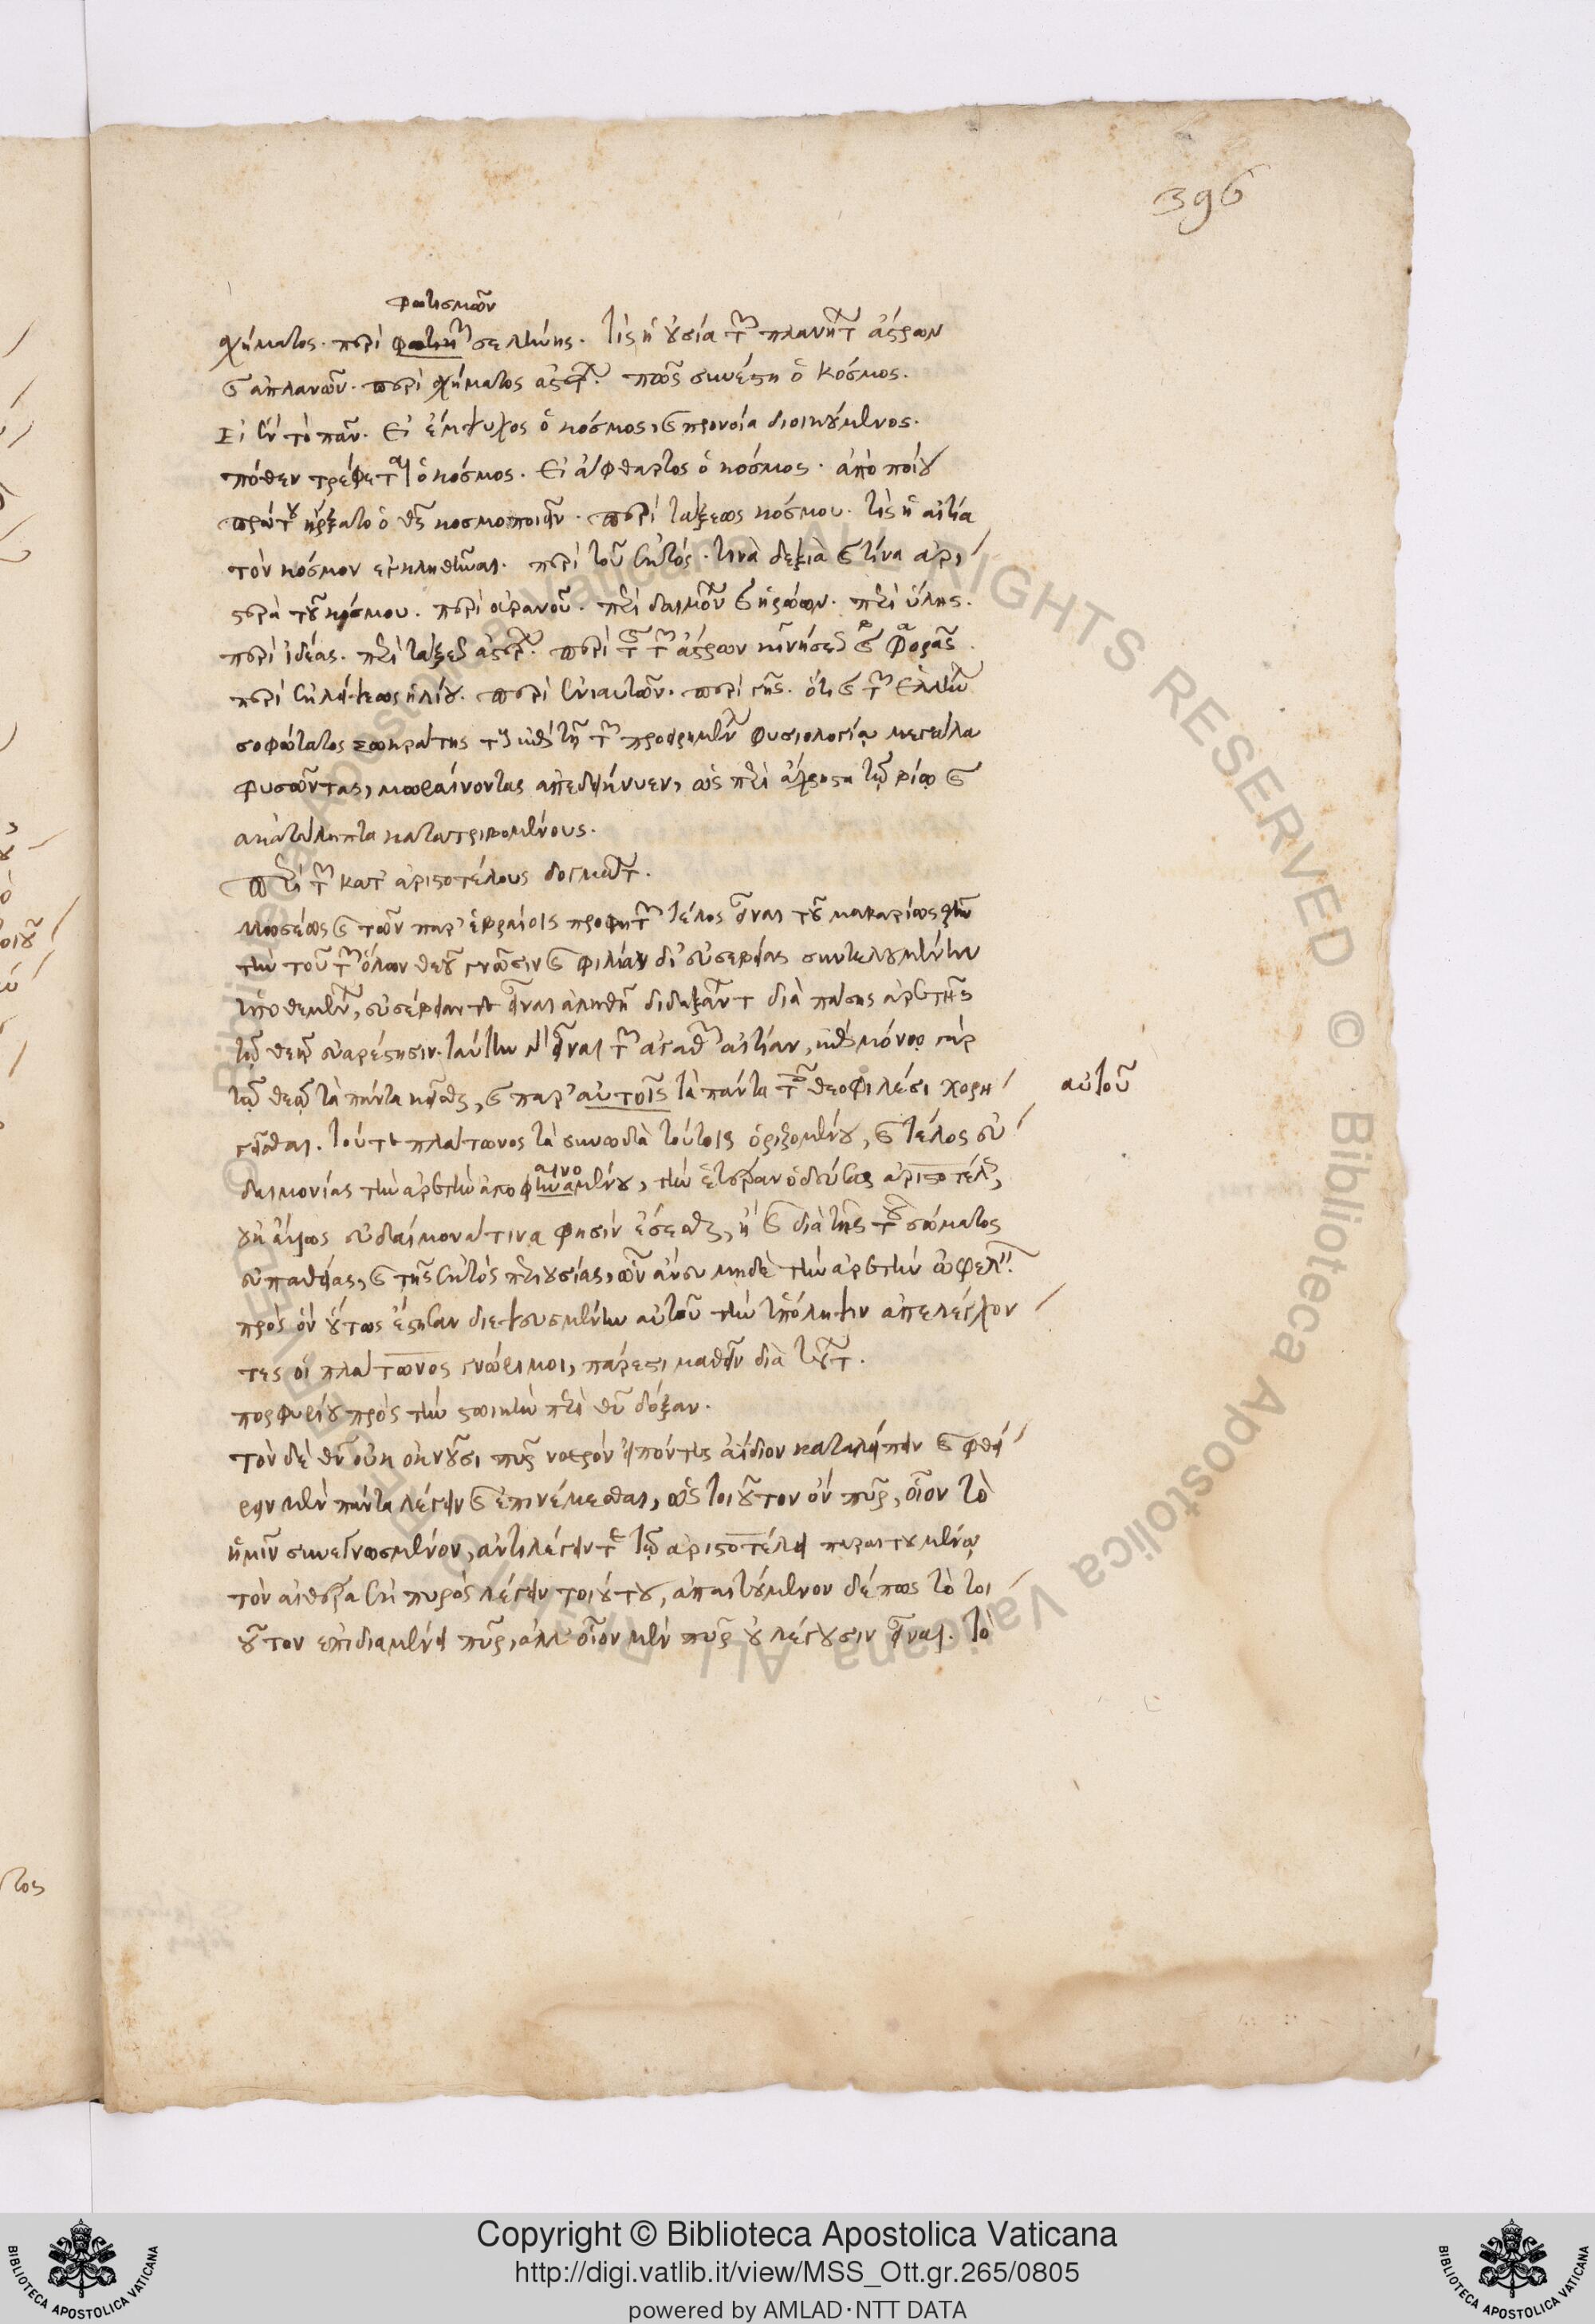 396
φωτισμῶν
σχήματος. περὶ φωτικῶν σελήνης. τίς ἡ οὐσία τῶν πλανητῶν ἀστέρων
καὶ ἀπλανῶν. περὶ σχήματος ἀστέρων. πῶς συνέστη ὁ κόσμος.
Εἰ ἓν τὸ πᾶν. Εἰ ἔμψυχος ὁ κόσμος, καὶ προνοίᾳ διοικούμενος.
πόθεν τρέφεται ὁ κόσμος. Εἰ ἄφθαρτος ὁ κόσμος. ἀπὸ ποίου
πρώτου ἤρξατο ὁ θεὸς κοσμοποιεῖν. περὶ τάξεως κόσμου. τίς ἡ αἰτία
τὸν κόσμον ἐγκλιθῆναι. περὶ τοῦ ἐκτός. τίνα δεξιὰ καὶ τίνα ἀρι
στερὰ τοῦ κόσμου. περὶ οὐρανοῦ. περὶ δαιμόνων καὶ ἡρώων. περὶ ὕλης.
περὶ ἰδέας. περὶ τάξεως ἀστέρων. περὶ τῆς τῶν ἀστέρων κινήσεως καὶ φορᾶς.
περὶ ἐκλείψεως ἡλίου. περὶ ἐνιαυτῶν. περὶ γῆς. ὅτι καὶ τῶν ἑλλήνων
σοφώτατος Σωκράτης τοὺς ἐπὶ τῇ τῶν προειρημένων φυσιολογίᾳ μεγάλα
φυσῶντας, μωραίνοντας ἀπεδείκνυεν, ὡς περὶ ἄχρηστα τῷ βίῳ καὶ
ἀκατάληπτα κατατριβομένους.
Περὶ τῶν κατ' ἀριστοτέλους δογμάτων.
Μωσέως καὶ τῶν παρ' ἑβραίοις προφητῶν τέλος εἶναι τοῦ μακαρίως ζῆν
τὴν τοῦ τῶν ὅλων θεοῦ γνῶσιν καὶ φιλίαν δι' εὐσεβείας συντελουμένην
ὑποθεμένων, εὐσέβειάν τε εἶναι ἀληθῆ διδαξάντων διὰ πάσης ἀρετῆς
τῷ θεῷ εὐαρέστησιν. ταύτην δὲ εἶναι τῶν ἀγαθῶν αἰτίαν, ἐπὶ μόνῳ γὰρ
τῷ θεῷ τὰ πάντα κεῖσθαι, καὶ παρ' αὐτοῖς τὰ πάντα τοῖς θεοφιλέσι χορη
αὐτοῦ
γεῖσθαι. τοῦ τε πλάτωνος τὰ συνῳδὰ τούτοις ὁριζομένου, καὶ τέλος εὐ
αινο
δαιμονίας τὴν ἀρετὴν ἀποφηναμένου, τὴν ἑτέραν ὁδεύσας ἀριστοτέλης,
οὐκ ἄλλως εὐδαίμονά τινα φησὶν ἔσεσθαι, ἢ καὶ διὰ τῆς τοῦ σώματος
εὐπαθείας, καὶ τῆς ἐκτὸς περιουσίας, ὧν ἄνευ μηδὲ τὴν ἀρετὴν ὠφελεῖν.
πρὸς ὃν οὕτως ἔστησαν διεψευσμένην αὐτοῦ τὴν ὑπόληψιν ἀπελέγχον
τες οἱ πλάτωνος γνώριμοι, πάρεστι μαθεῖν διὰ τούτων.
πορφυρίου πρὸς τὴν στωικὴν περὶ θεοῦ δόξαν.
τὸν δὲ θεὸν οὐκ ὀκνοῦσι πῦρ νοερὸν εἰπόντες ἀΐδιον καταλείπειν καὶ φθεί
ρειν μὲν πάντα λέγειν καὶ ἐπινέμεσθαι, ὡς τοιοῦτον ὂν πῦρ, οἷον τὸ
ἡμῖν συνεγνωσμένον, ἀντιλέγειν τε τῷ ἀριστοτέλει παραιτουμένῳ
τὸν αἰθέρα ἐκ πυρὸς λέγειν τοιούτου, ἀπαιτούμενον δέ πως τὸ τοι
οῦτον ἐπιδιαμένει πῦρ, ἀλλ' οἷον μὲν πῦρ οὐ λέγουσιν εἶναι. τὸ
Copyright © Biblioteca Apostolica Vaticana
http://digi.vatlib.it/view/MSS_Ott.gr.265/0805
powered by AMLAD·NTT DATA
BIBLIOTECA APOSTOLICA VATICANA
BIBLIOTECA APOSTOLICA VATICANA
© Biblioteca Apostolica Vaticana ALL RIGHTS RESERVED © Biblioteca Apostolica Vaticana ALL RIGHTS RESERVED